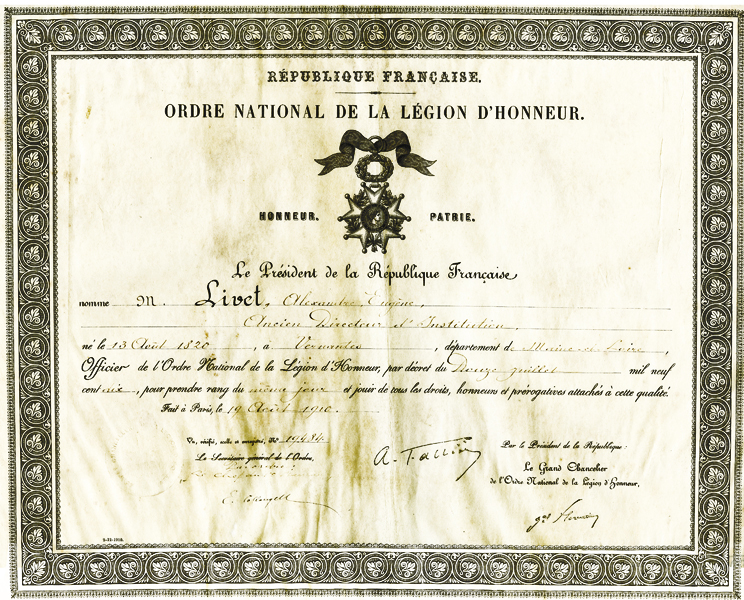 RÉPUBLIQUE FRANÇAISE.
ORDRE NATIONAL DE LA LÉGION D'HONNEUR.
HONNEUR. PATRIE.
Le Président de la République Française
nomme M. Livet, Alexandre, Eugène,
Ancien Directeur d'Institution
né le 13 Août 1820, à Vernantes, département de Maine-et-Loire,
Officier de l'Ordre National de la Légion d'Honneur, par décret du Douze juillet mil neuf
cent dix, pour prendre rang du même jour et jouir de tous les droits, honneurs et prérogatives attachés à cette qualité.
Fait à Paris, le 19 Août 1910.
Vu, vérifié, scellé et enregistré, N° 19484
Le Secrétaire général de l'Ordre,
A. Fallières
Par le Président de la République:
Le Grand Chancelier
de l'Ordre National de la Légion d'Honneur,
gal Florentin